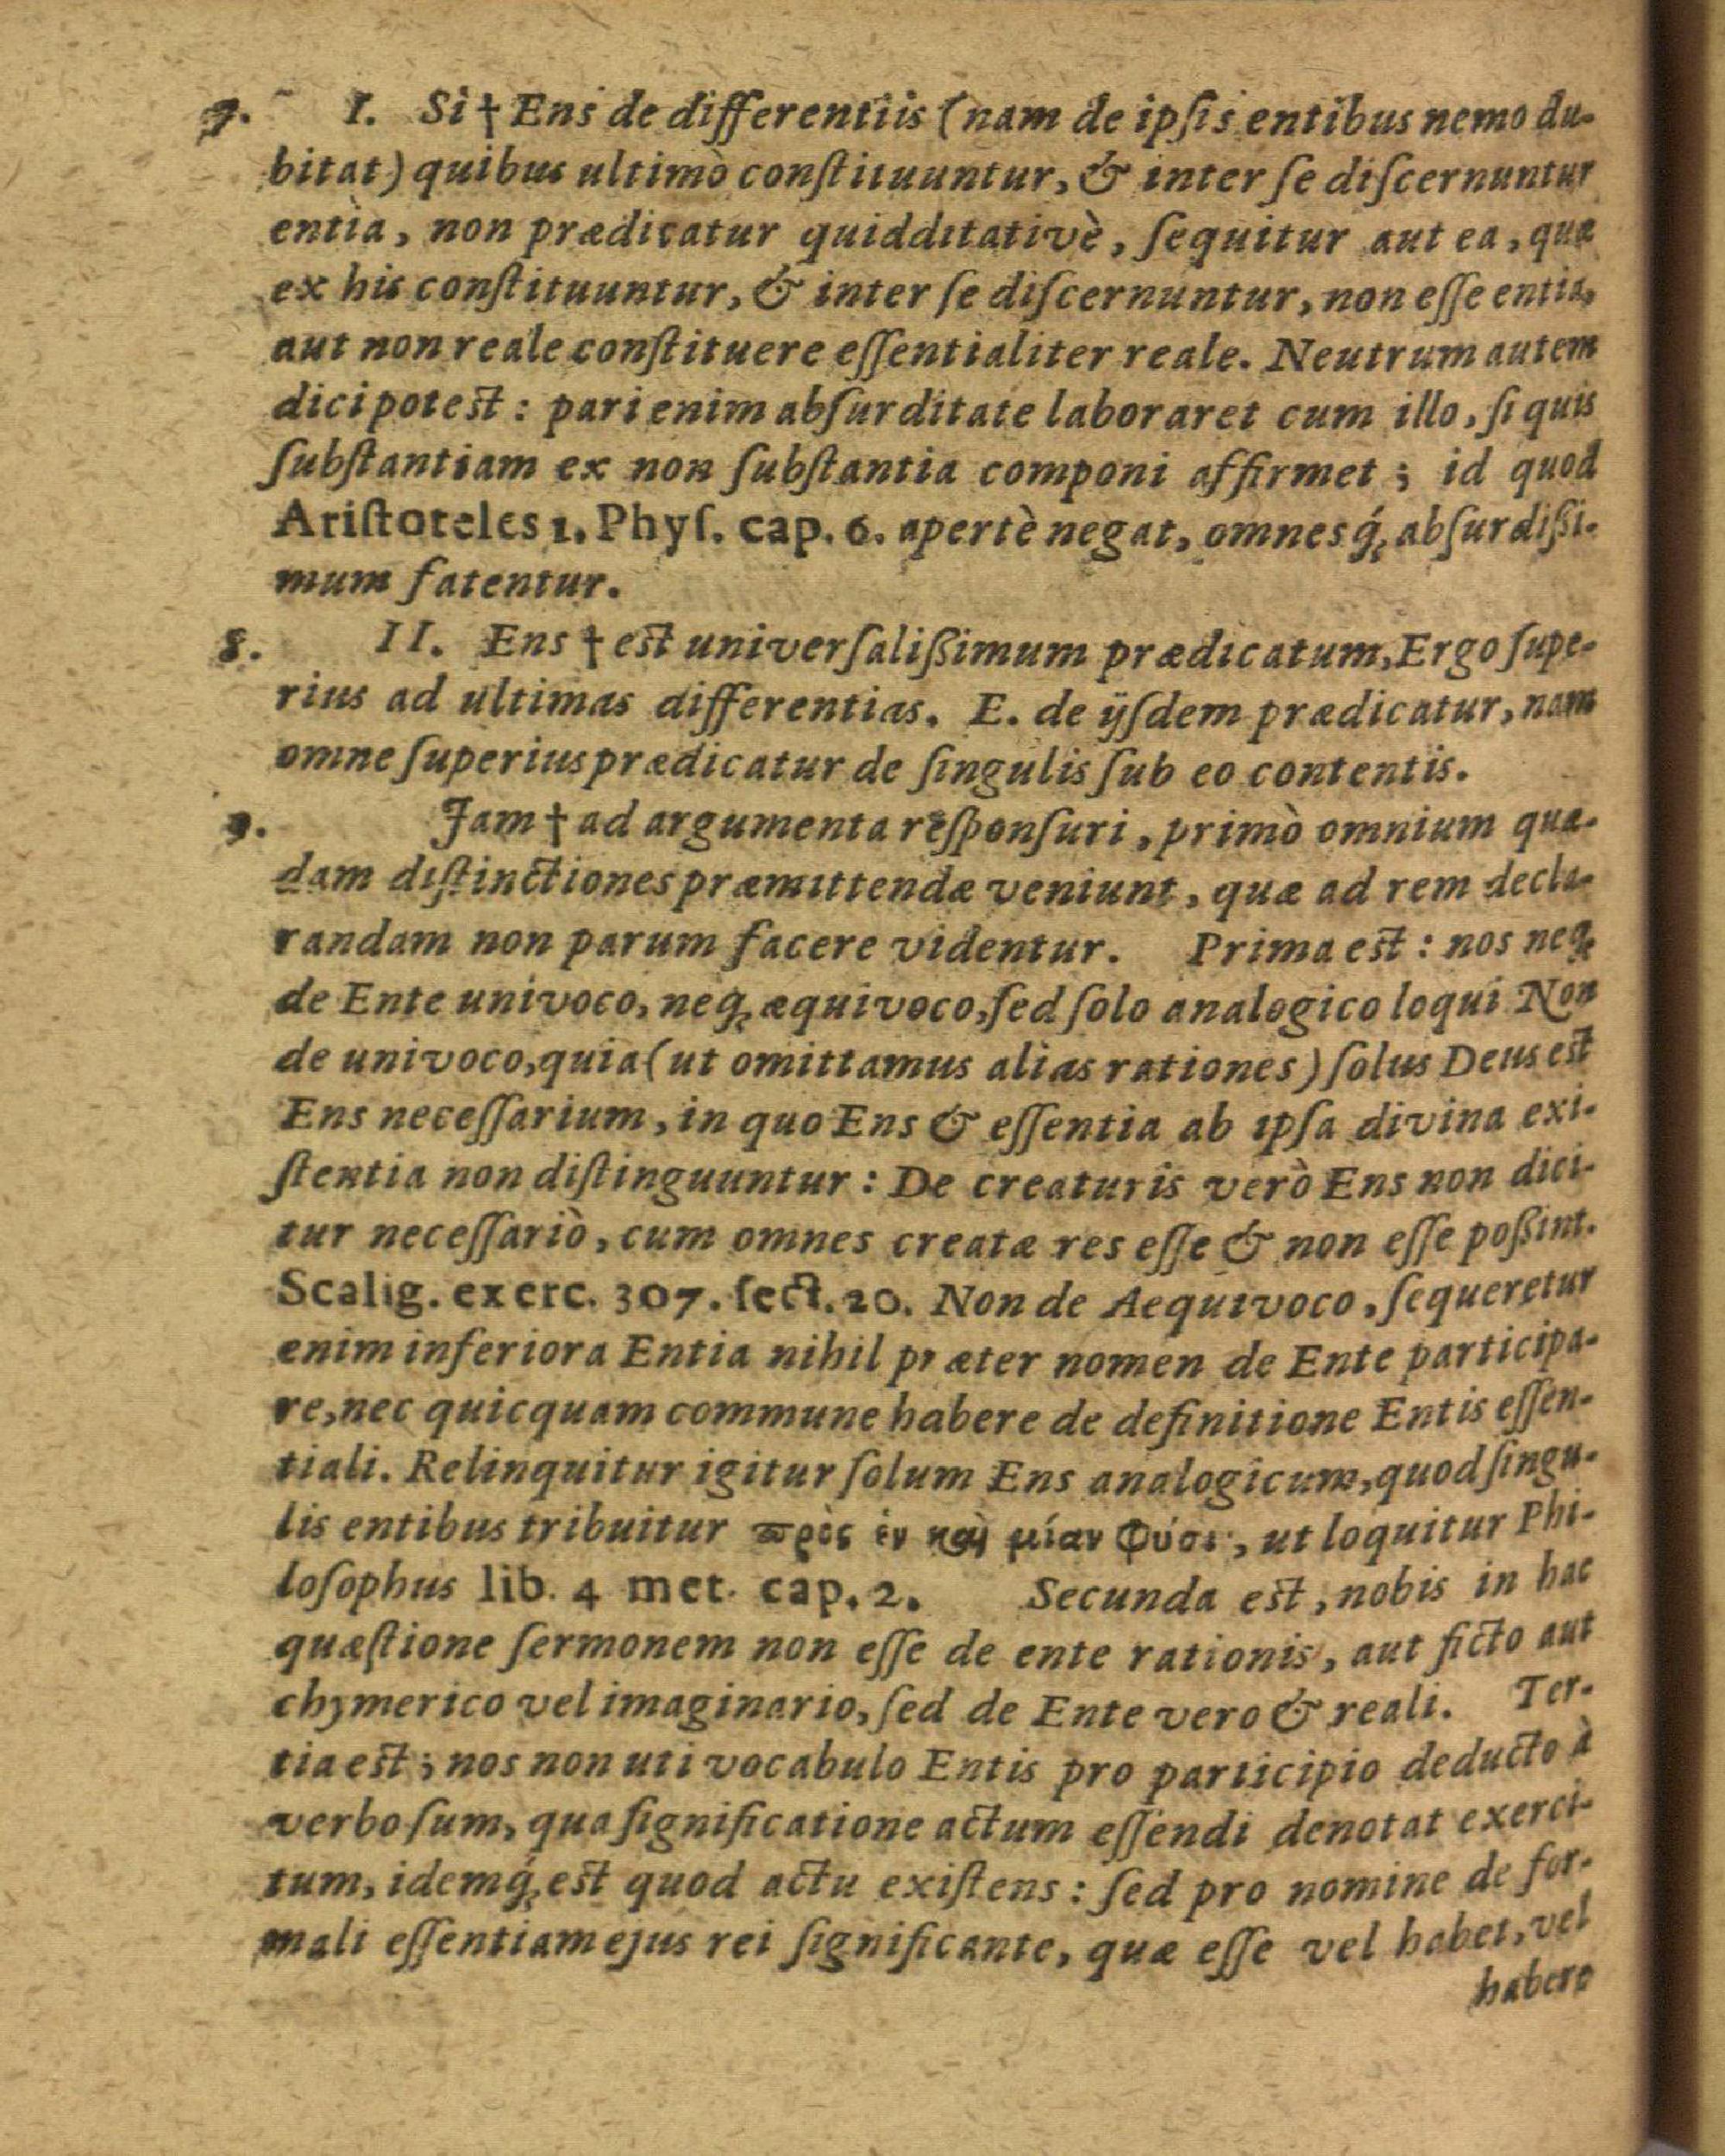 7. I. Si † Ens de differentiis (nam de ipſis entibus nemo du-
bitat) quibus ultimò conſtituuntur, & inter ſe diſcernuntur
entia, non prædicatur quidditativè, ſequitur aut ea, quæ
ex his conſtituuntur, & inter ſe diſcernuntur, non eſſe entia,
aut non reale conſtituere eſſentialiter reale. Neutrum autem
dici poteſt: pari enim abſurditate laboraret cum illo, ſi quis
ſubſtantiam ex non ſubſtantia componi affirmet; id quod
Ariſtoteles 1. Phyſ. cap. 6. apertè negat, omnesq́; abſurdiſſi-
mum fatentur.
8. II. Ens † eſt univerſaliſſimum prædicatum, Ergo ſupe-
rius ad ultimas differentias. E. de ijſdem prædicatur, nam
omne ſuperius prædicatur de ſingulis ſub eo contentis.
9. Jam † ad argumenta reſponſuri, primò omnium quæ-
dam diſtinctiones præmittendæ veniunt, quæ ad rem decla-
randam non parum facere videntur. Prima eſt: nos neq;
de Ente univoco, neq; æquivoco, ſed ſolo analogico loqui Non
de univoco, quia (ut omittamus alias rationes) ſolus Deus eſt
Ens neceſſarium, in quo Ens & eſſentia ab ipſa divina exi-
ſtentia non diſtinguuntur: De creaturis verò Ens non dici-
tur neceſſariò, cum omnes creatæ res eſſe & non eſſe poſſint.
Scalig. exerc. 307. ſect. 20. Non de Aequivoco, ſequeretur
enim inferiora Entia nihil præter nomen de Ente participa-
re, nec quicquam commune habere de definitione Entis eſſen-
tiali. Relinquitur igitur ſolum Ens analogicum, quod ſingu-
lis entibus tribuitur πρὸς ἑν καὶ μίαν φύσι, ut loquitur Phi-
loſophus lib. 4 met. cap. 2. Secunda eſt, nobis in hac
quæſtione ſermonem non eſſe de ente rationis, aut ficto aut
chymerico vel imaginario, ſed de Ente vero & reali. Ter-
tia eſt; nos non uti vocabulo Entis pro participio deducto à
verbo ſum, qua ſignificatione actum eſſendi denotat exerci-
tum, idemq́; eſt quod actu exiſtens: ſed pro nomine de for-
mali eſſentiam ejus rei ſignificante, quæ eſſe vel habet, vel
habere